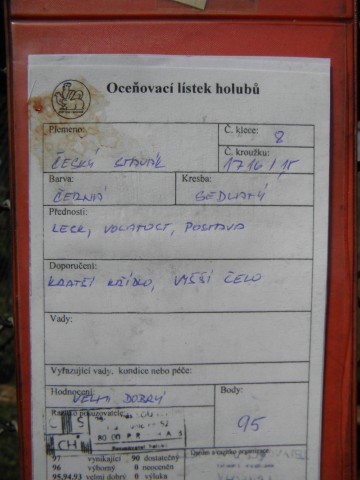 Oceňovací lístek holubů
Plemeno:
Č. klece: 8
ČESKÝ STAVÁK
Č. kroužku:
1716/15
Barva:
Kresba:
ČERNÁ
SEDLATÝ
Přednosti:
LESK, VOLATOST, POSTAVA
Doporučení:
KRATŠÍ KŘÍDLO, VYŠŠÍ ČELO
Vady:
Vyřazující vady, kondice nebo péče:
Hodnocení:
Body:
VELMI DOBRÝ
95
Razítko posuzovatele:
Č S
CH
97 vynikající 90 dostatečný
96 výborný 0 neoceněn
95,94,93 velmi dobrý 0 výluka